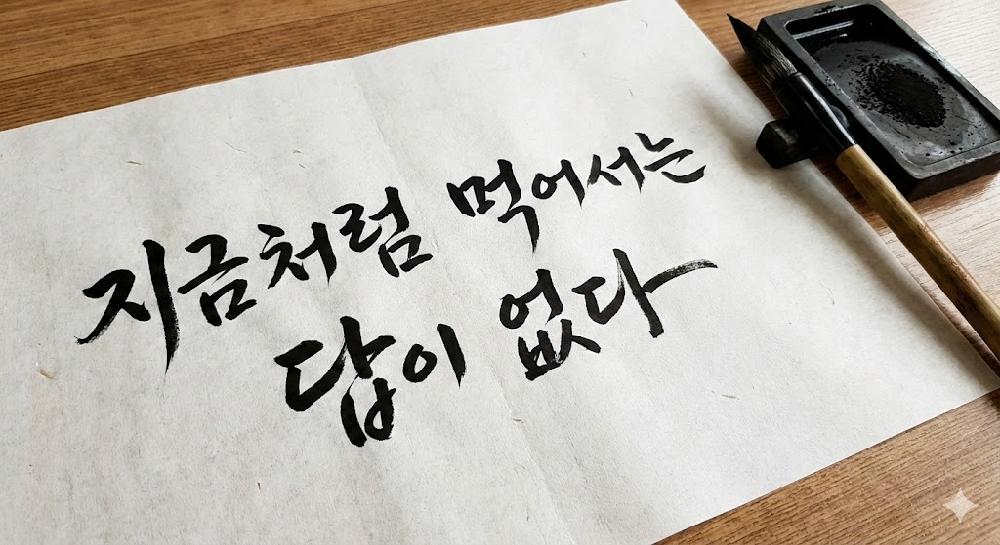 지금처럼 먹어서는
답이 없다